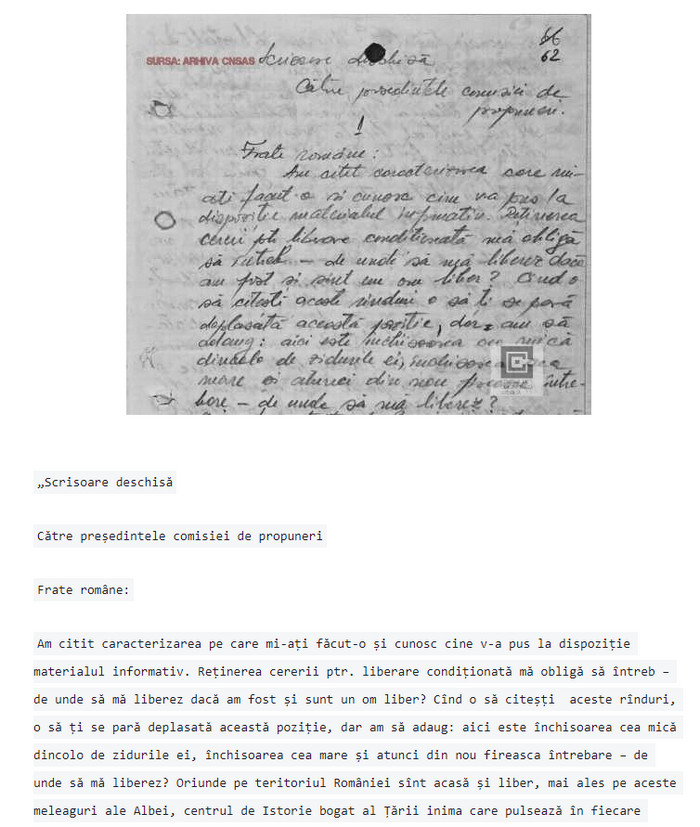 66
62
SURSA: ARHIVA CNSAS Scrisoare deschisă
Către președintele comisiei de
propuneri.
Frate române:
Am citit caracterizarea care mi-
ați făcut-o și cunosc cine va pus la
dispoziție materialul informativ. Reținerea
cererii ptr. liberare condiționată mă obligă
să întreb – de unde să mă liberez dacă
am fost și sînt un om liber? Cînd o
să citești aceste rînduri o să ți se pară
deplasată această poziție, dar am să
adaug: aici este închisoarea cea mică
dincolo de zidurile ei, închisoarea cea
mare și atunci din nou fireasca între-
bare – de unde să mă liberez?
„Scrisoare deschisă
Către președintele comisiei de propuneri
Frate române:
Am citit caracterizarea pe care mi-ați făcut-o și cunosc cine v-a pus la dispoziție
materialul informativ. Reținerea cererii ptr. liberare condiționată mă obligă să întreb –
de unde să mă liberez dacă am fost și sunt un om liber? Cînd o să citești aceste rînduri,
o să ți se pară deplasată această poziție, dar am să adaug: aici este închisoarea cea mică
dincolo de zidurile ei, închisoarea cea mare și atunci din nou fireasca întrebare – de
unde să mă liberez? Oriunde pe teritoriul României sînt acasă și liber, mai ales pe aceste
meleaguri ale Albei, centrul de Istorie bogat al Țării inima care pulsează în fiecare